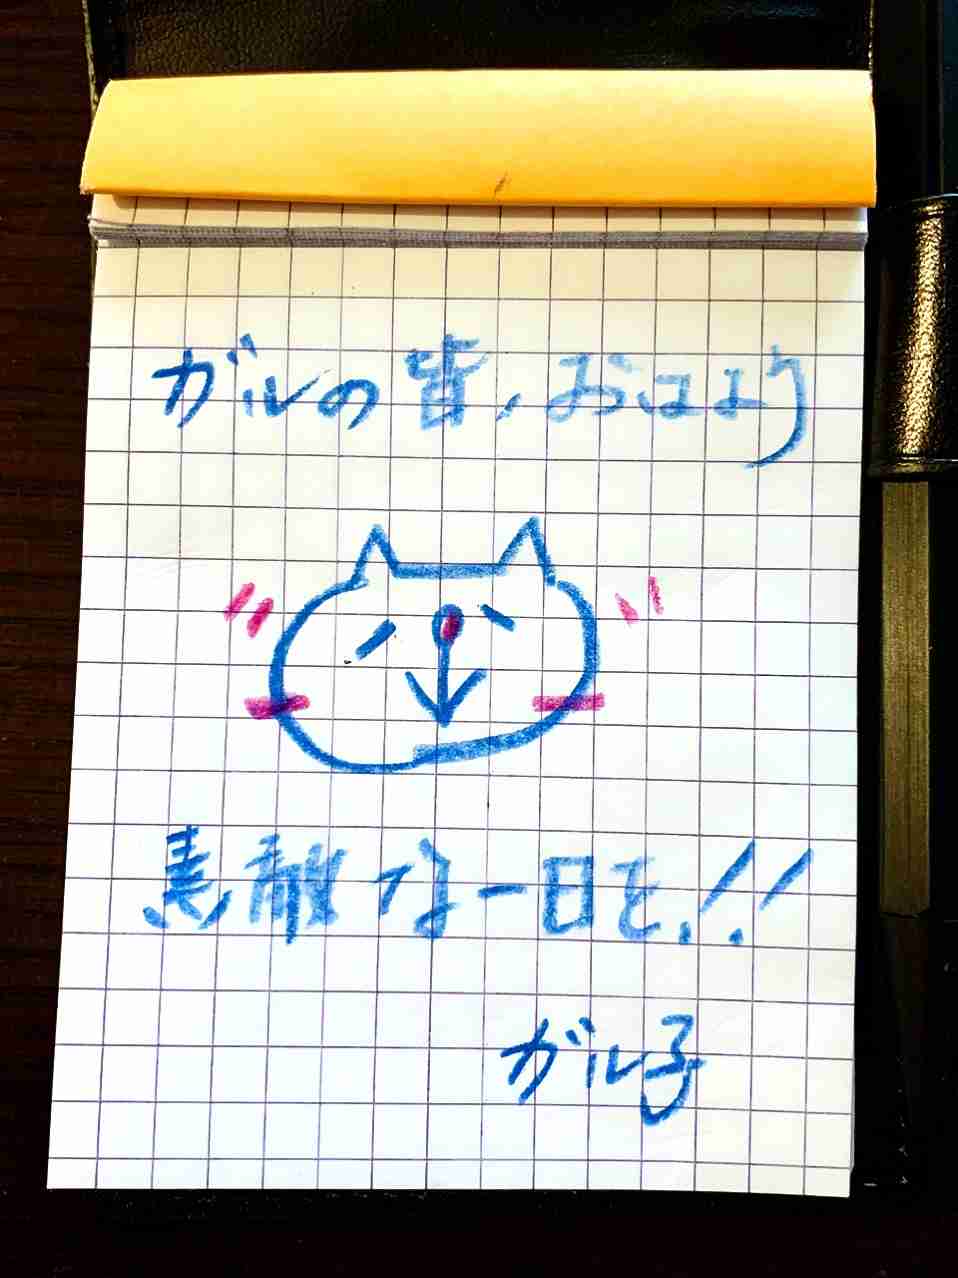 ガルの皆、おはよう
素敵な一日を!!
ガル子